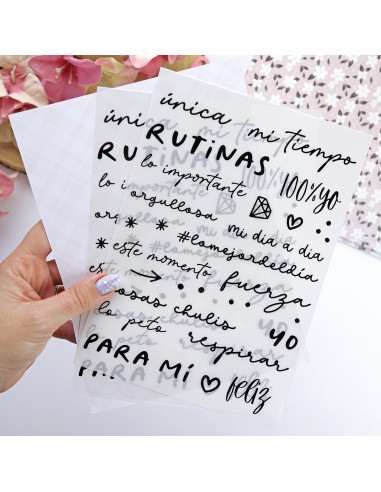 única mi tiempo
RUTINAS
lo importante 100%yo
orgullosa mi día a día
#lomejordeldía
este momento fuerza
cosas chulis yo
lo peto respirar
PARA MÍ feliz